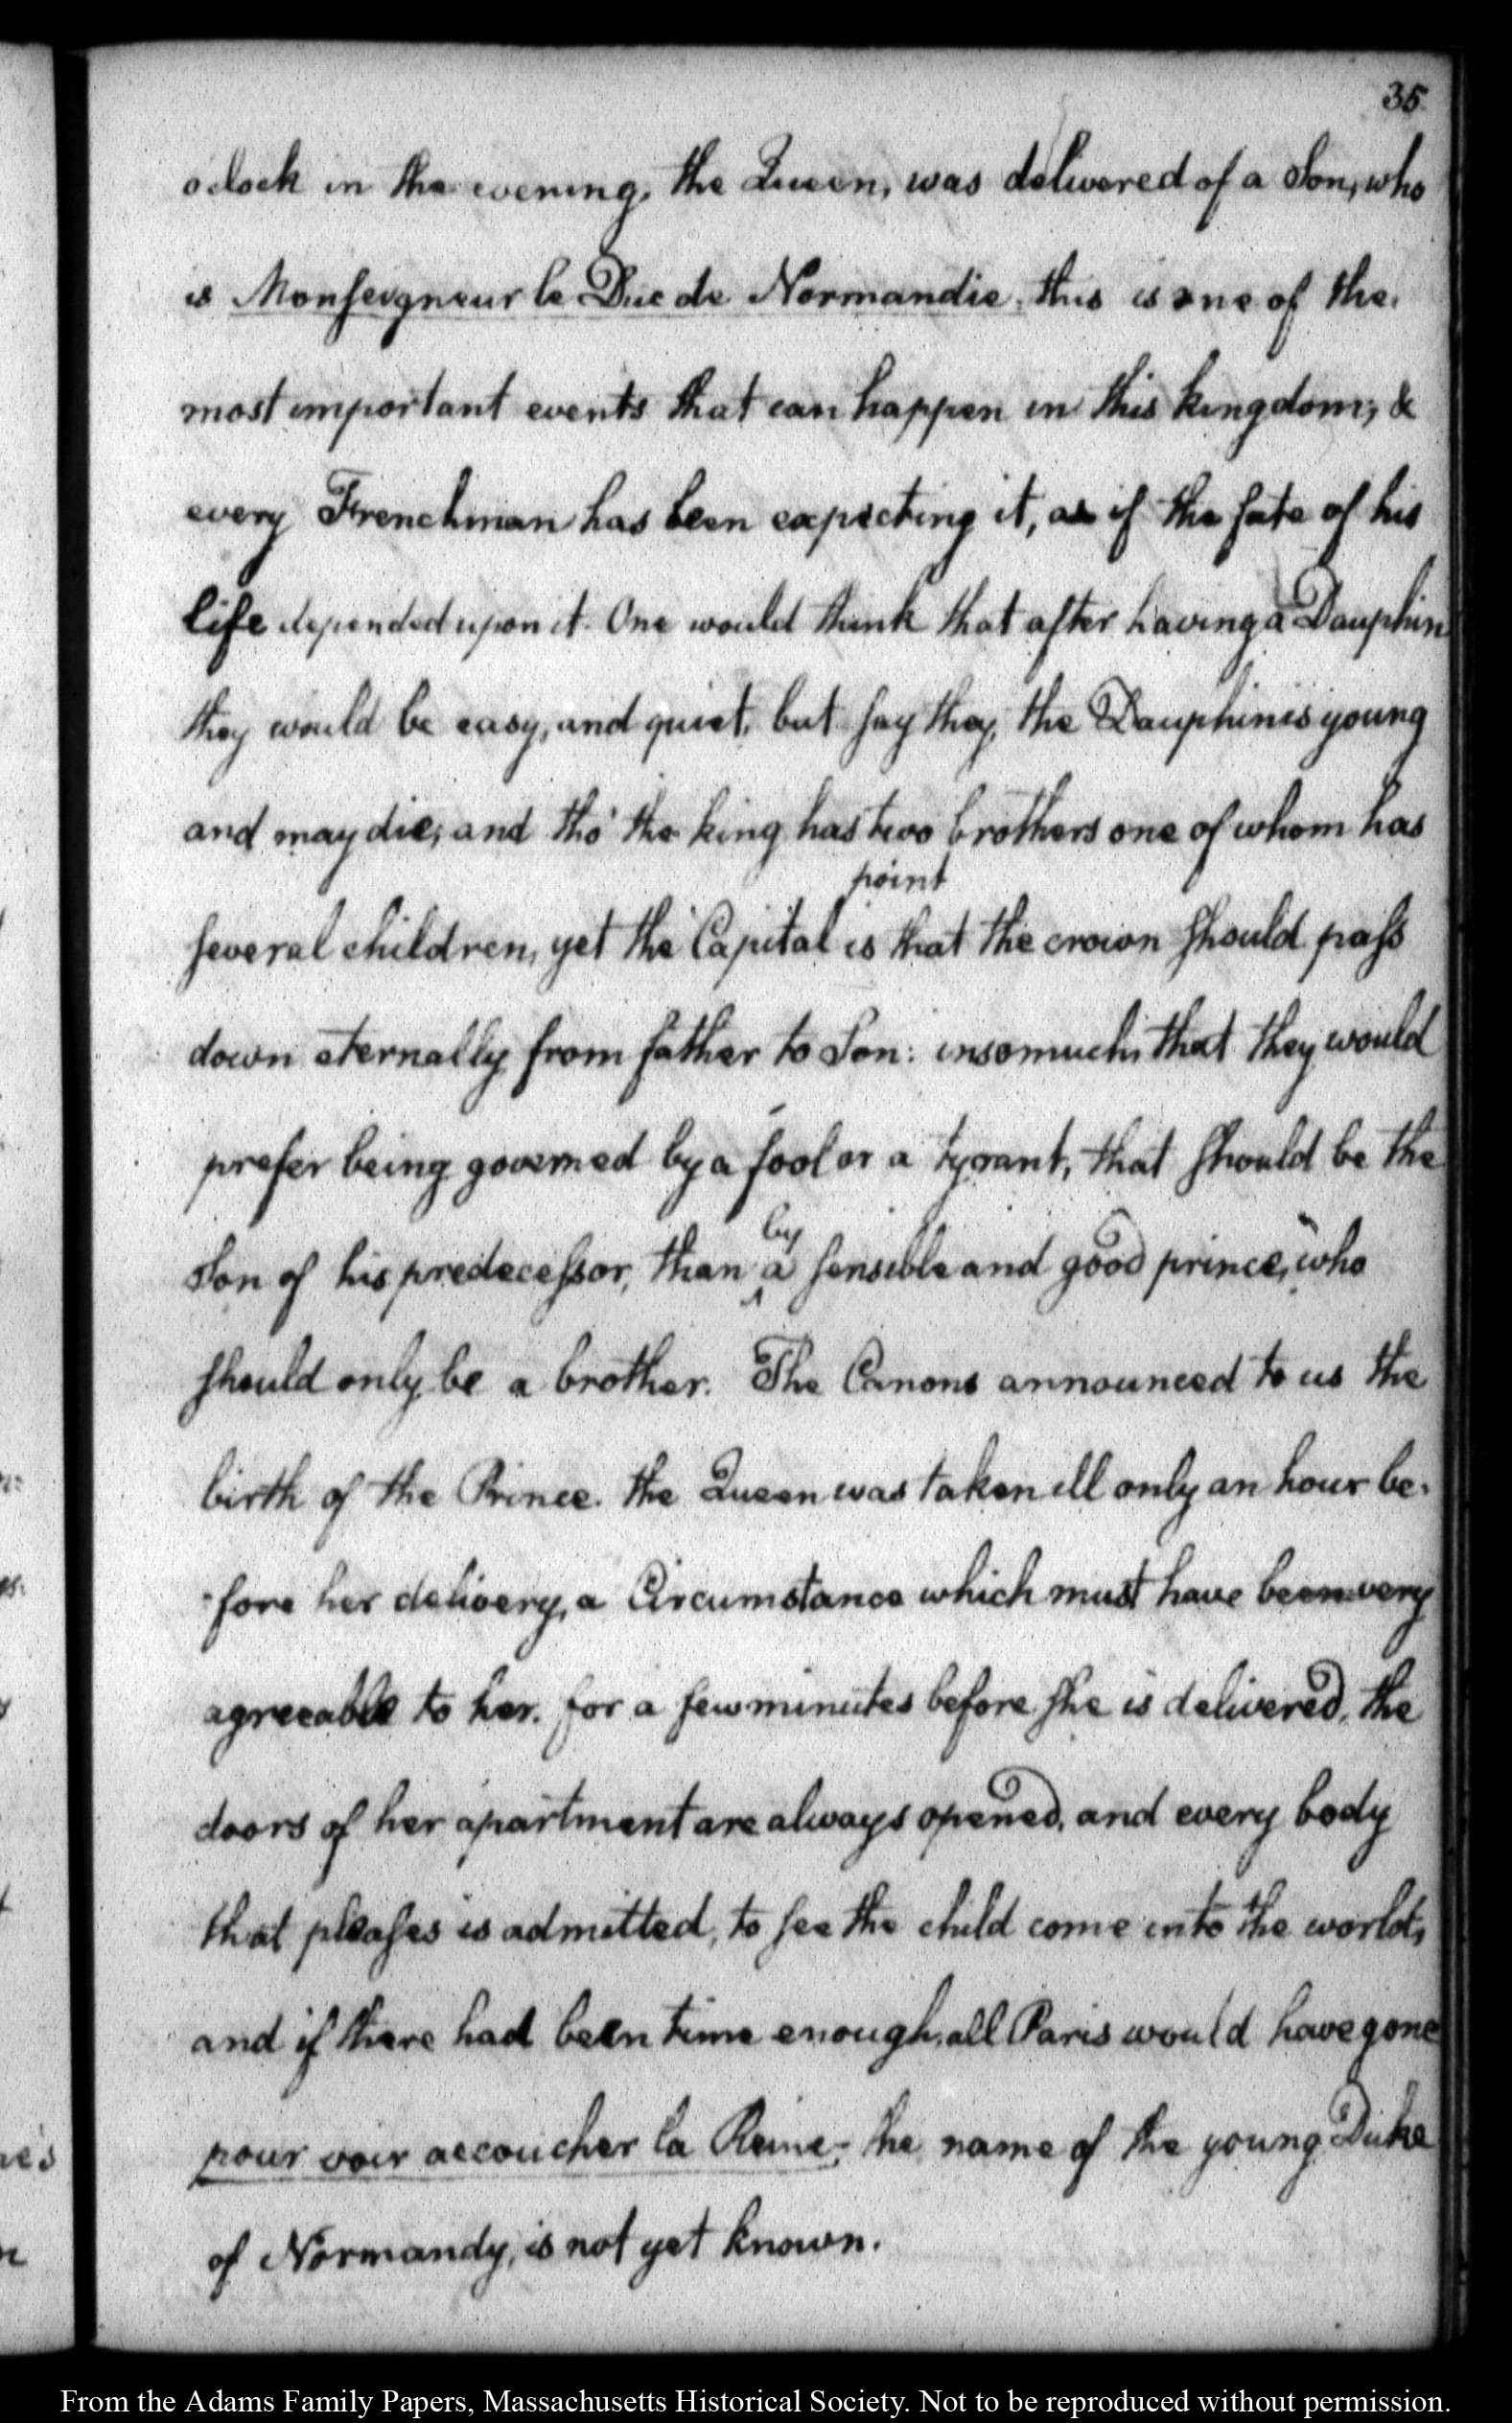 35
o clock in the evening, the Queen, was delivered of a Son, who
is Monseigneur le Duc de Normandie. this is one of the
most important events that can happen in this kingdom, &
every Frenchman has been expecting it, as if the fate of his
life depended upon it. One would think that after having a Dauphin
they would be easy, and quiet, but say they, the Dauphin is young
and may die; and tho' the king has two brothers one of whom has
point
several children, yet the Capital is that the crown should pass
down eternally from father to Son: insomuch that they would
prefer being governed by a fool or a tyrant, that should be the
by
Son of his predecessor, than ^ a sensible and good prince, who
should only be a brother. The Canons announced to us the
birth of the Prince. the Queen was taken ill only an hour be-
-fore her delivery, a Circumstance which must have been very
agreeable to her. for a few minutes before she is delivered, the
doors of her apartment are always opened, and every body
that pleases is admitted, to see the child come into the world,
and if there had been time enough, all Paris would have gone
pour voir accoucher la Reine. the name of the young Duke
of Normandy, is not yet known.
From the Adams Family Papers, Massachusetts Historical Society. Not to be reproduced without permission.